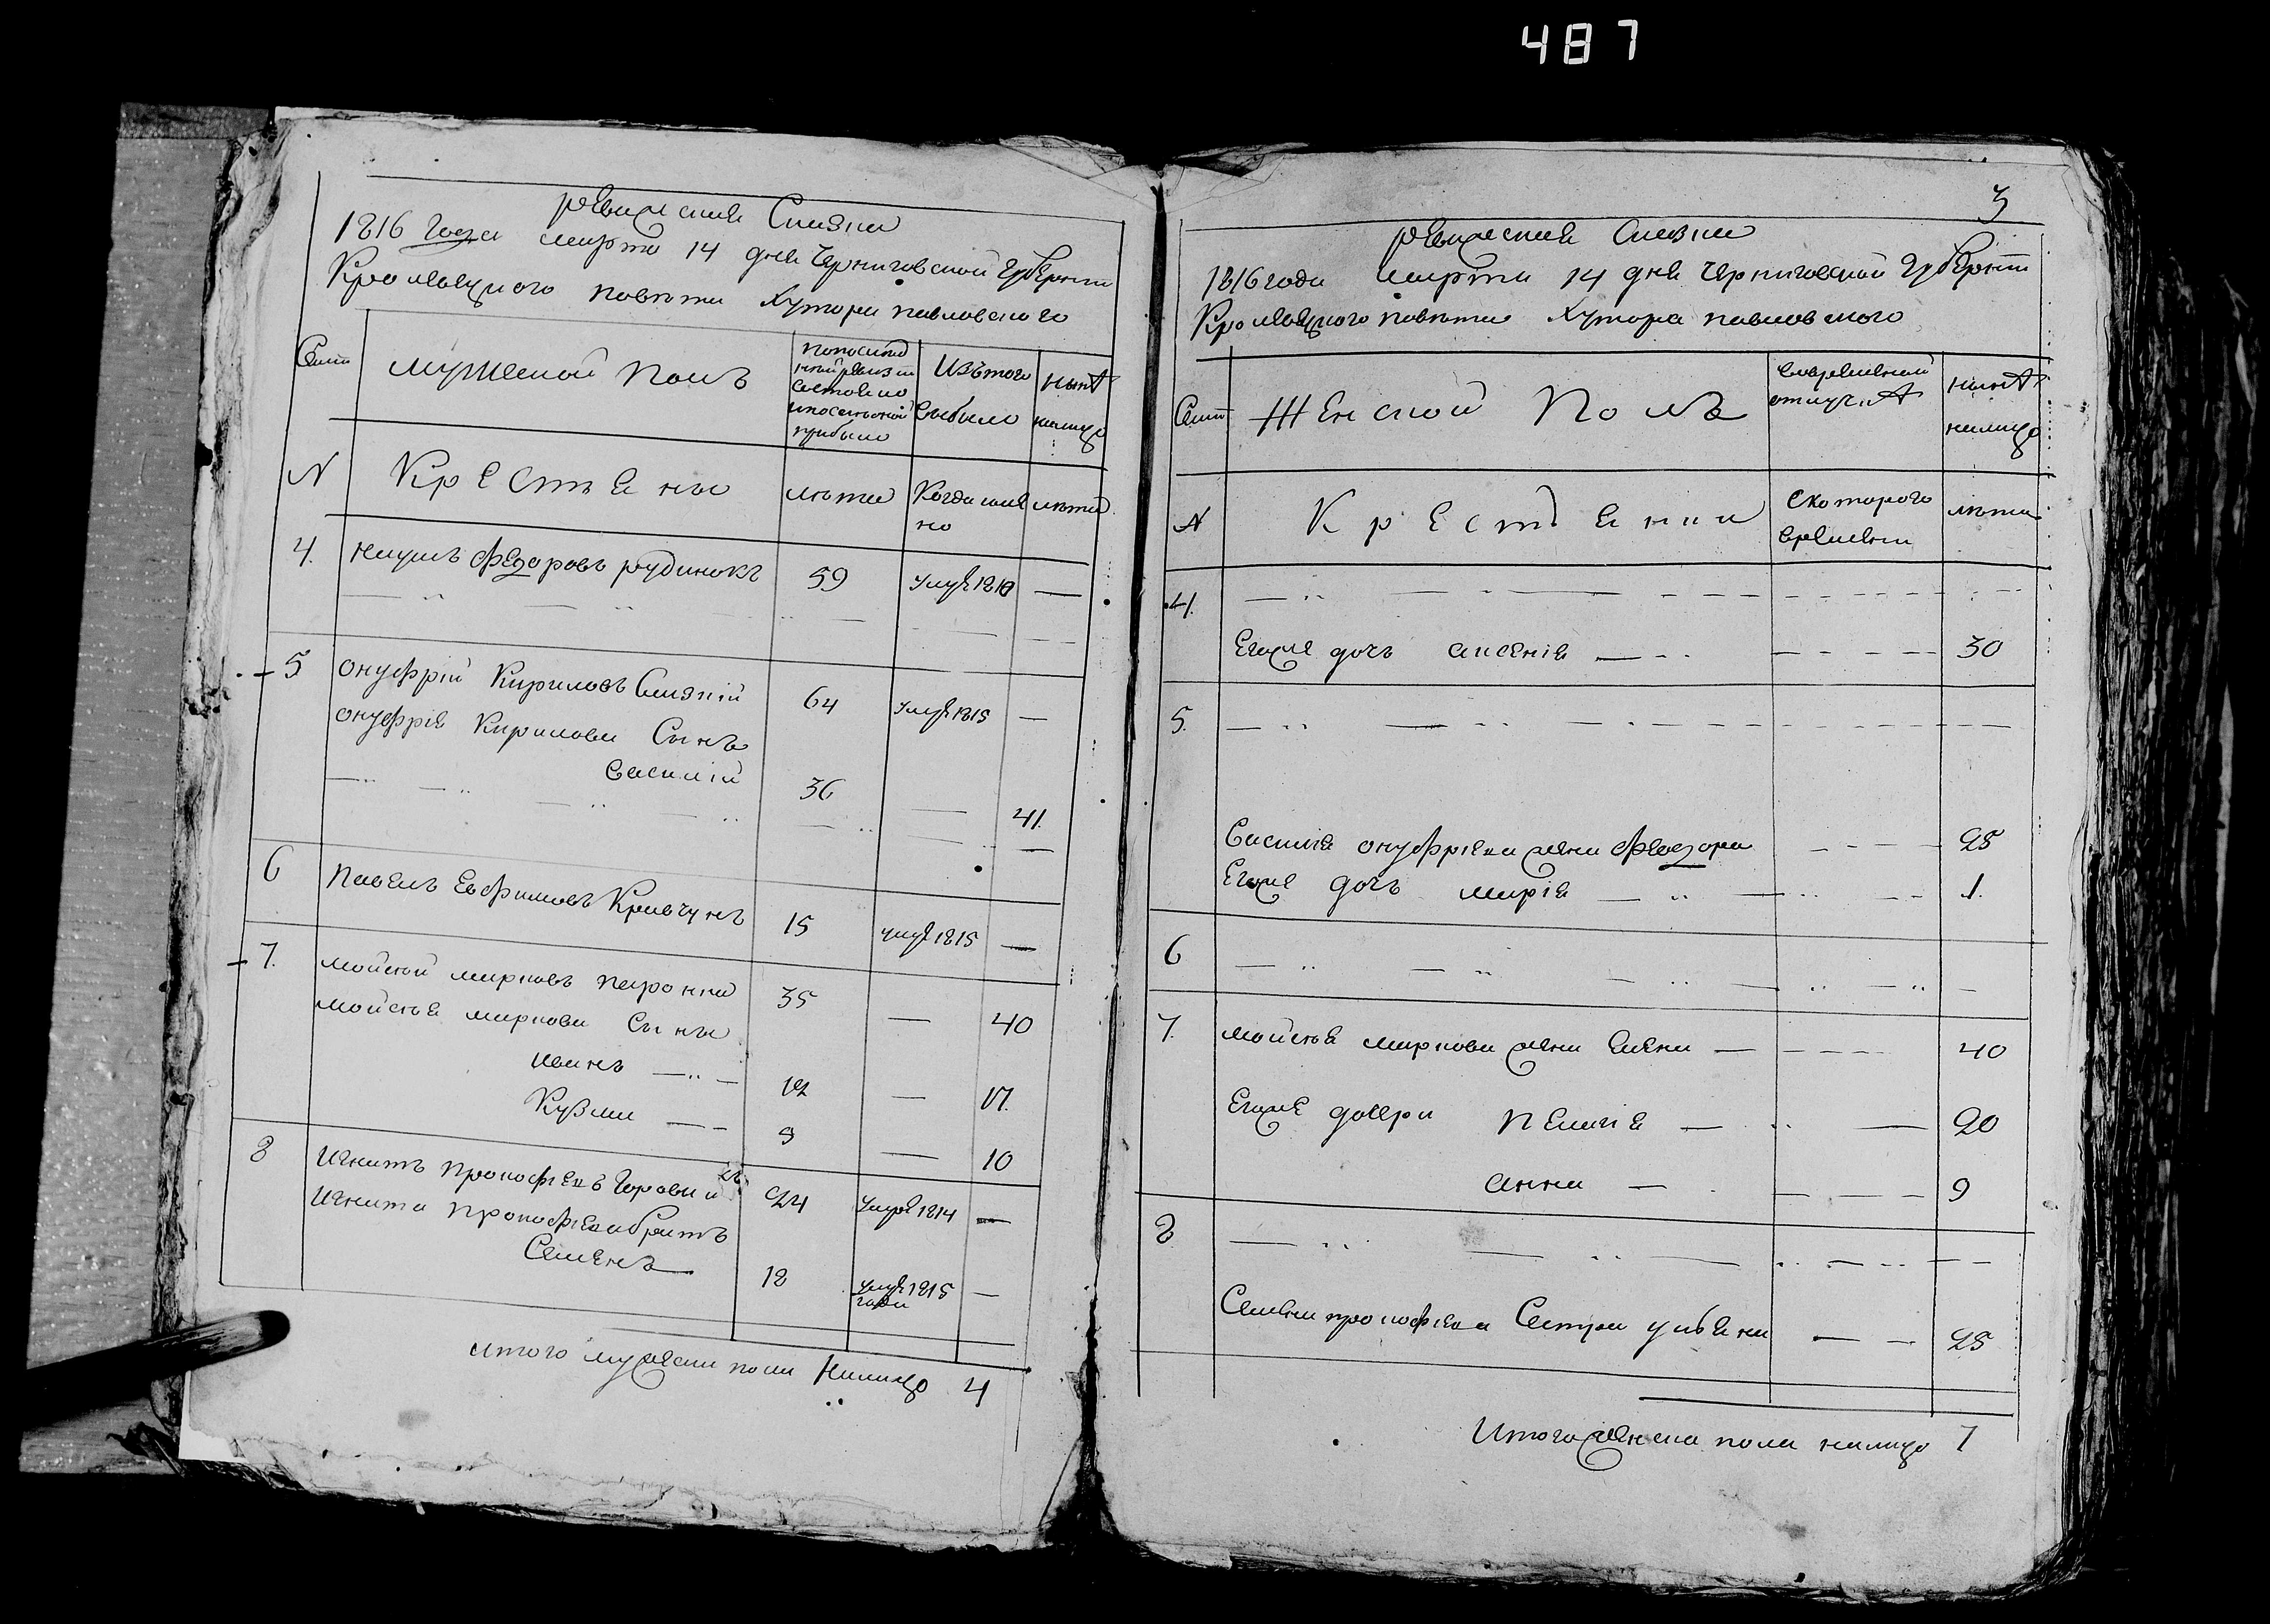 487
ревизская Сказка
1816 года марта 14 дня Черниговской губернии
Кролевецкого повета хутора павловского
Семьи
мужеской полъ
Изътого
выбыло
нынѣ
налицо
N
Крестьяне
лета
Когда имянно
лета
4. наумъ федоровъ рудинокъ 59 умре 1810 —
5 онуфрій Кириловъ 64 умре 1815 —
онуфрія Кирилова Сынъ
василій 36 — 41.
6 павелъ Евфимовъ Кривчунъ 15 умре 1815 —
7. мойсей марковъ 35 — 40
мойсея маркова Сыны
иванъ 12 — 17.
Кузма 9 — 10
8 игнатъ прокофіевъ 24 умре 1814 —
игната прокофіева братъ
Семенъ 18 умре 1815 —
года
итого мужеска пола налицо 4
3
ревизская Сказка
1816 года марта 14 дня Черниговской губернии
Кролевецкого повета хутора павловского
Семьи
Женской Полъ
вовременной
отлучкѣ
нынѣ
налицо
N
Крестьянки
Скоторого
времени
лета
4.
Егоже дочь аксенія 30
5.
василія онуфріева жена феодора 25
Егоже дочь марія 1.
6
7. мойсея маркова жена елена 40
Егоже дочери пелагія 20
анна 9
8
Семена прокофіева Сестра уляна 25
Итого женска пола налицо 7